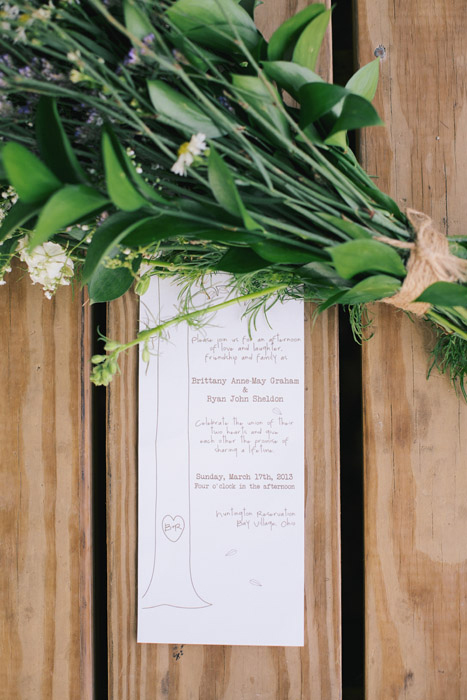 please join us for an afternoon
of love and laughter,
friendship and family as
Brittany Anne-May Graham
&
Ryan John Sheldon
Celebrate the union of their
two hearts and give
each other the promise of
sharing a lifetime
Sunday, March 17th, 2013
Four o'clock in the afternoon
Huntington Reservation
Bay Village, Ohio
B+R